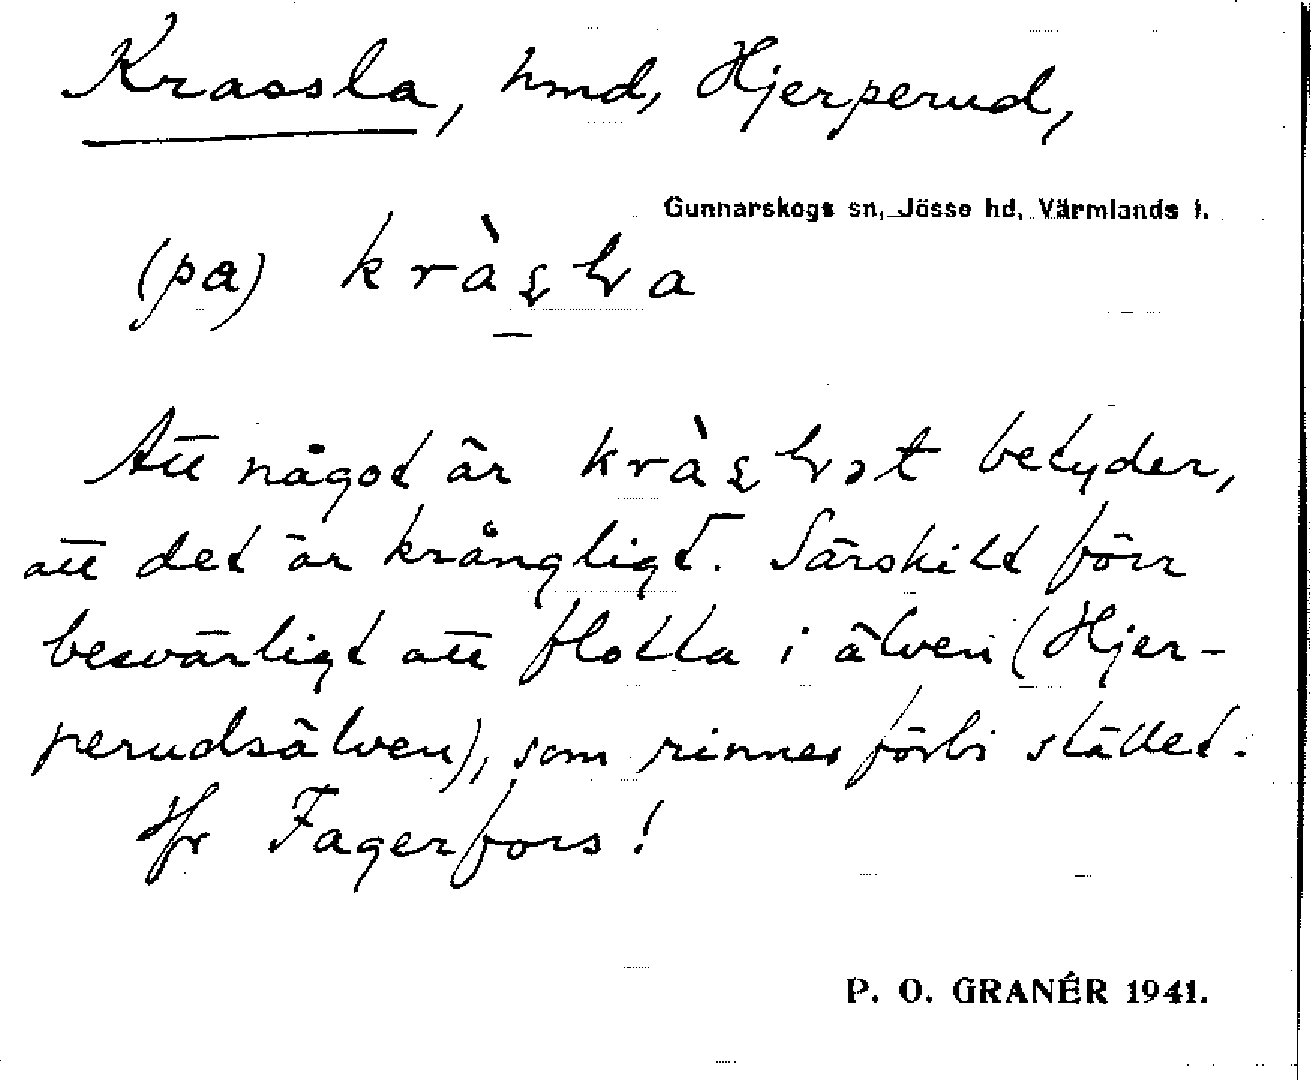 Krassla, hmd, Hjerperud,
Gunnarskogs sn, Jösse hd, Värmlands l.
(pa)
Att något är betyder,
att det är krångligt. Särskilt förr
besvärligt att flotta i älven (Hjer-
perudsälven), som rinner förbi stället.
Jfr Fagerfors!
P. O. GRANÉR 1941.